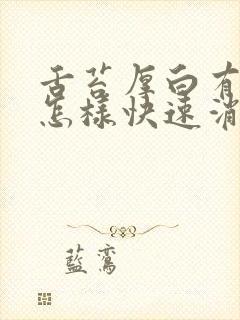 舌苔厚白有
怎樣快速消
藍鸞